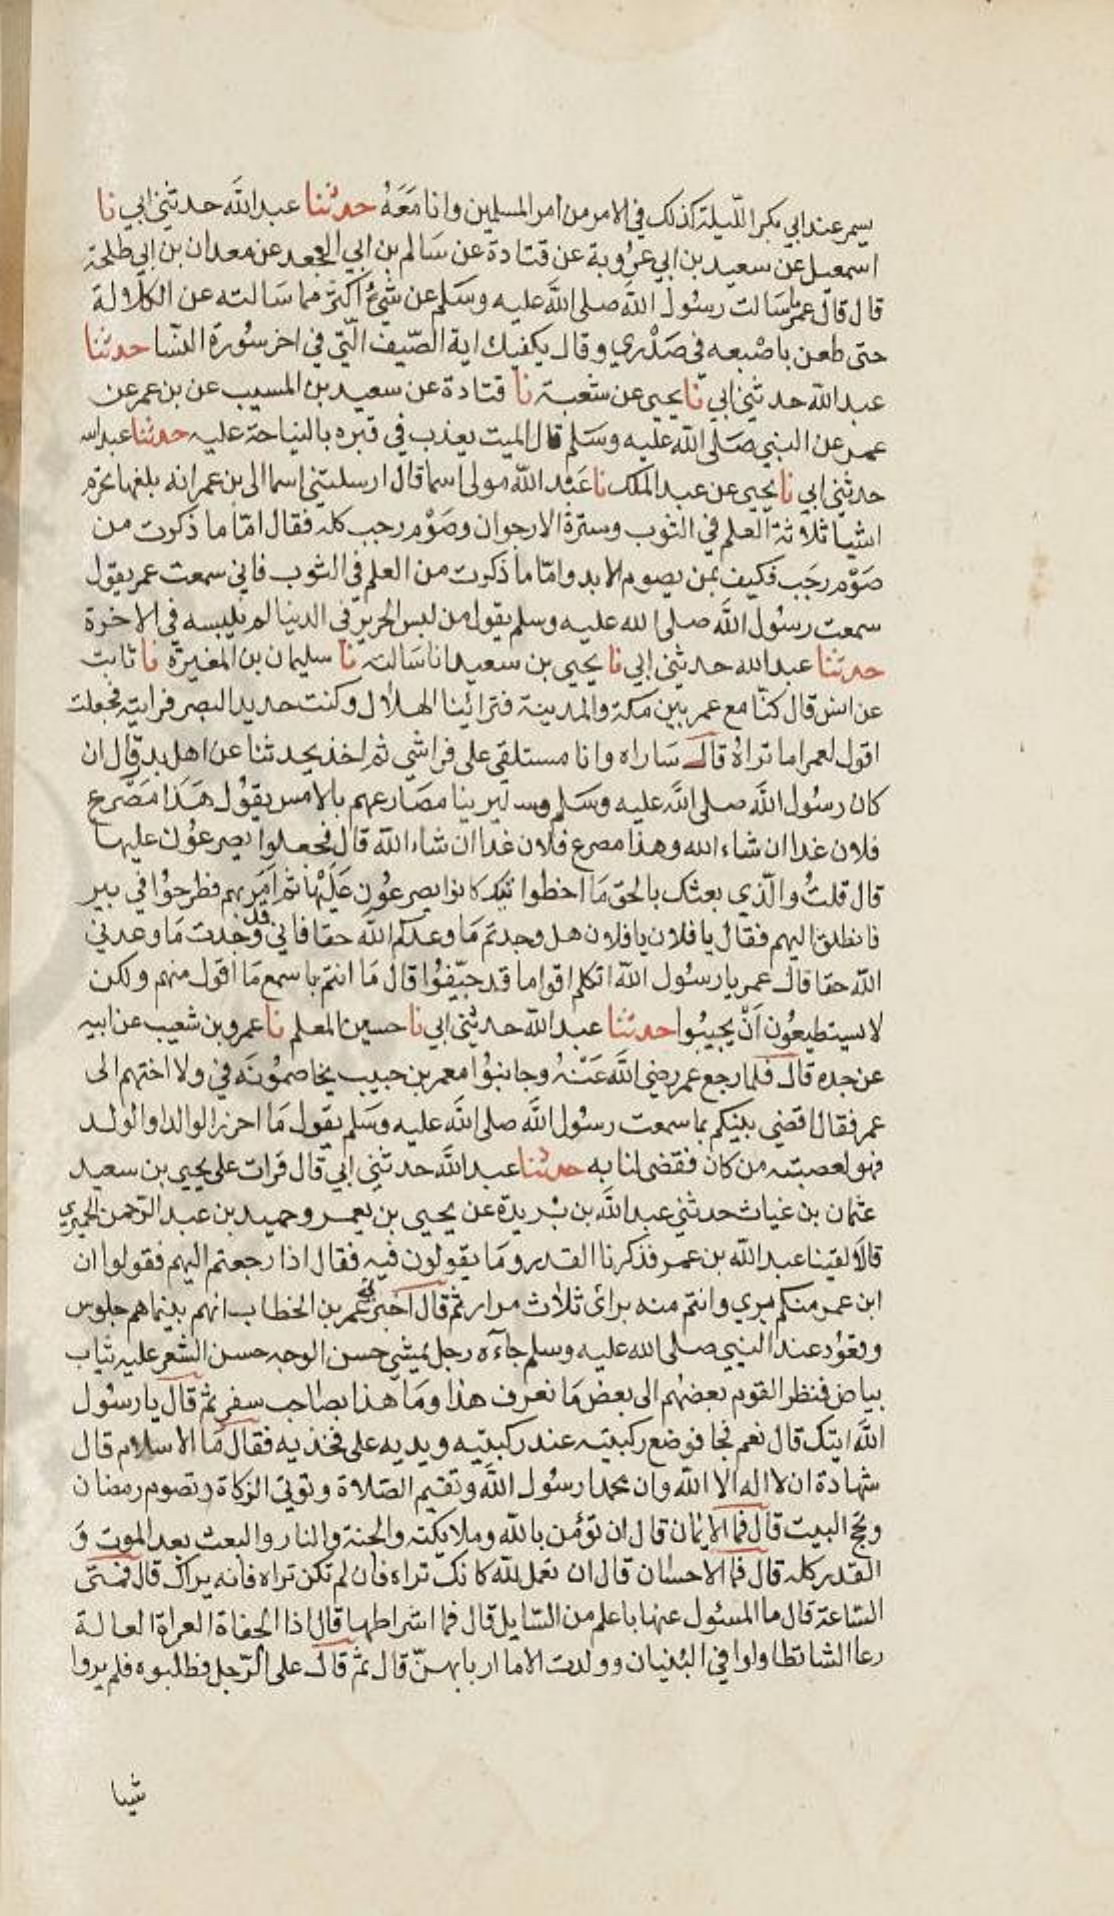 يسمر عند ابي بكر الليلة كذلك في الامر من امر المسلمين وانا مَعَهُ حدثنا عبد الله حدثني ابي نا
اسمعيل عن سعيد بن ابي عروبة عن قتادة عن سالم بن ابي الجعد عن معدان بن ابي طلحة
قال قال عمر سَالت رسُول الله صلى الله عليه وسَلم عن شيءٍ اكثر مما سَالته عن الكلالة
حتى طعن باصْبعه في صَدْري وقال يكفيك اية الصّيف الّتي في اخر سُورة النّسا حدثنا
عبد الله حدثني ابي نا يحيى عن شعبة نا قتادة عن سعيد بن المسيب عن بن عمر عن
عمر عن النبي صَلى الله عليه وسَلم قال الميت يعذب في قبره بالنياحة عليه حدثنا عبد الله
حدثني ابي نا يحيى عن عبد الملك نا عَبْد الله مولى اسما قال ارسلتني اسما الى بن عمر انه بلغها تحرم
اشيا ثلاثة العلم في الثوب وسترة الارجوان وصَوْم رجب كله فقال امّا ما ذكرت من
صَوْم رجَب فكيف بمن يصوم الابد وامّا ما ذكرت من العلم في الثوب فاني سمعت عمر يقول
سمعت رسُول الله صلى الله عليه وسلم يقول من لبس الحرير في الدنيا لم يلبسه في الاخرة
حدثنا عبد الله حدثني ابي نا يحيى بن سعيد انا سَالته نا سليمان بن المغيرة نا ثابت
عن انس قال كنّا مع عمر بين مكة والمدينة فتراءينا الهلال وكنت حديد البصر فرايته فجعلت
اقول لعمر اما تراهُ قال سَاراه وانا مستلقي على فراشي ثم اخذ يحدثنا عن اهل بدر قال ان
كان رسُول الله صلى الله عليه وسَلم ليرينا مصَارعهم بالامس يقوُل هَذا مَصْرع
فلان غدا ان شاء الله وهذا مصرع فلان غدا ان شاء الله قال فجعلوا يصرعُون عليها
قال قلتُ والّذي بعثك بالحق مَا اخطوا تيك كانوا يصرعُون عَلَيْها ثم اَمَر بهم فطرحُوا في بير
فانطلق اليهم فقال يا فلان يا فلان هل وجدتم مَا وعدكم الله حقا فاني قد وَجدت مَا وعدني
الله حقا قال عمر يا رسُول الله اتكلم اقواما قد جيّفُوا قال مَا انتم باسمع مَا اقول منهم ولكن
لا يستطيعُون اَنْ يجيبُوا حدثنا عبد الله حدثني ابي نا حسين المعلم نا عمرو بن شعيب عن ابيه
عن جده قال فلما رجع عمر رضي الله عَنْهُ وجا بنُوا معمر بن حبيب يخاصمُونَه في ولا اختهم الى
عمر فقال اقضي بينكم بما سمعت رسُول الله صلى الله عليه وسَلم يقول مَا احرز الوالد او الولد
فهو لعصبته من كان فقضى لنا به حدثنا عبد الله حدثني ابي قال قرات على يحيى بن سعيد
عثمان بن غياث حدثني عبد الله بن بُريدة عن يحيى بن يعمر وحميد بن عبد الرّحمن الحميري
قالَا لقينا عبد الله بن عمر فذكرنا القدر ومَا يقولون فيه فقال اذا رجعتم اليهم فقولوا ان
ابن عمر منكم بري وانتم منه برائ ثلاث مرار ثم قال اخبرني عمر بن الخطاب انهم بينما هم جلوس
وقعوُد عند النبي صلى الله عليه وسلم جآءه رجل يمشي حسن الوجه حسن الشعر عليه ثياب
بياض فنظر القوم بعضهُم الى بعض مَا نعرف هذا ومَا هذا بصَاحب سفر ثم قال يا رسُول
الله اتيك قال نعم فجا فوضع ركبتيه عند ركبتيه ويديه على فخذيه فقال مَا الاسلام قال
شهادة ان لا اله الا الله وان محمدا رسُول الله وتقيم الصّلاة وتوتي الزكاة وتصوم رمضان
وتحج البيت قال فما الايمان قال ان تؤمن بالله وملايكته والجنة والنار والبعث بعد الموت وَ
القدر كله قال فما الاحسان قال ان تعمل لله كانك تراه فان لم تكن تراه فانه يراك قال فمتى
السّاعة قال ما المسئول عنها باعلم من السّايل قال فما اشراطها قال اذا الحفاة العراة العالة
رعا الشا تطاولوا في البُنيان وولدت الاما اربابهنّ قال ثم قال على الرّجل فطلبوه فلم يروا
شيا